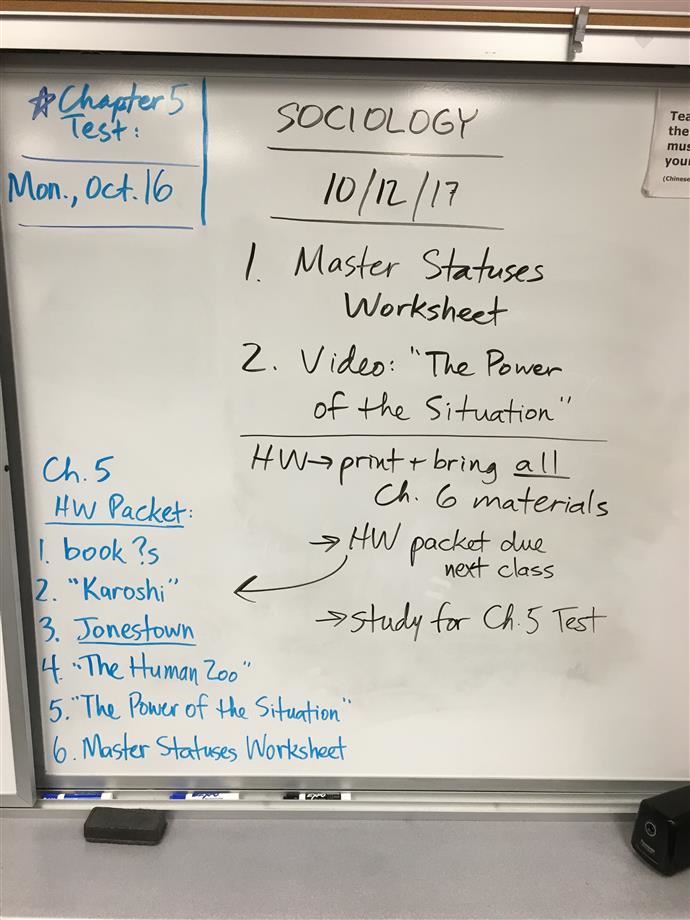 ☆Chapter 5
Test:
Mon., Oct. 16
SOCIOLOGY
10/12/17
1. Master Statuses
Worksheet
2. Video: "The Power
of the Situation"
HW→ print + bring all
Ch. 6 materials
→ HW packet due
next class
→ study for Ch. 5 Test
Ch. 5
HW Packet:
1. book ?s
2. "Karoshi"
3. Jonestown
4. "The Human Zoo"
5. "The Power of the Situation"
6. Master Statuses Worksheet
Tea
the
mus
your
(Chinese
EXPO